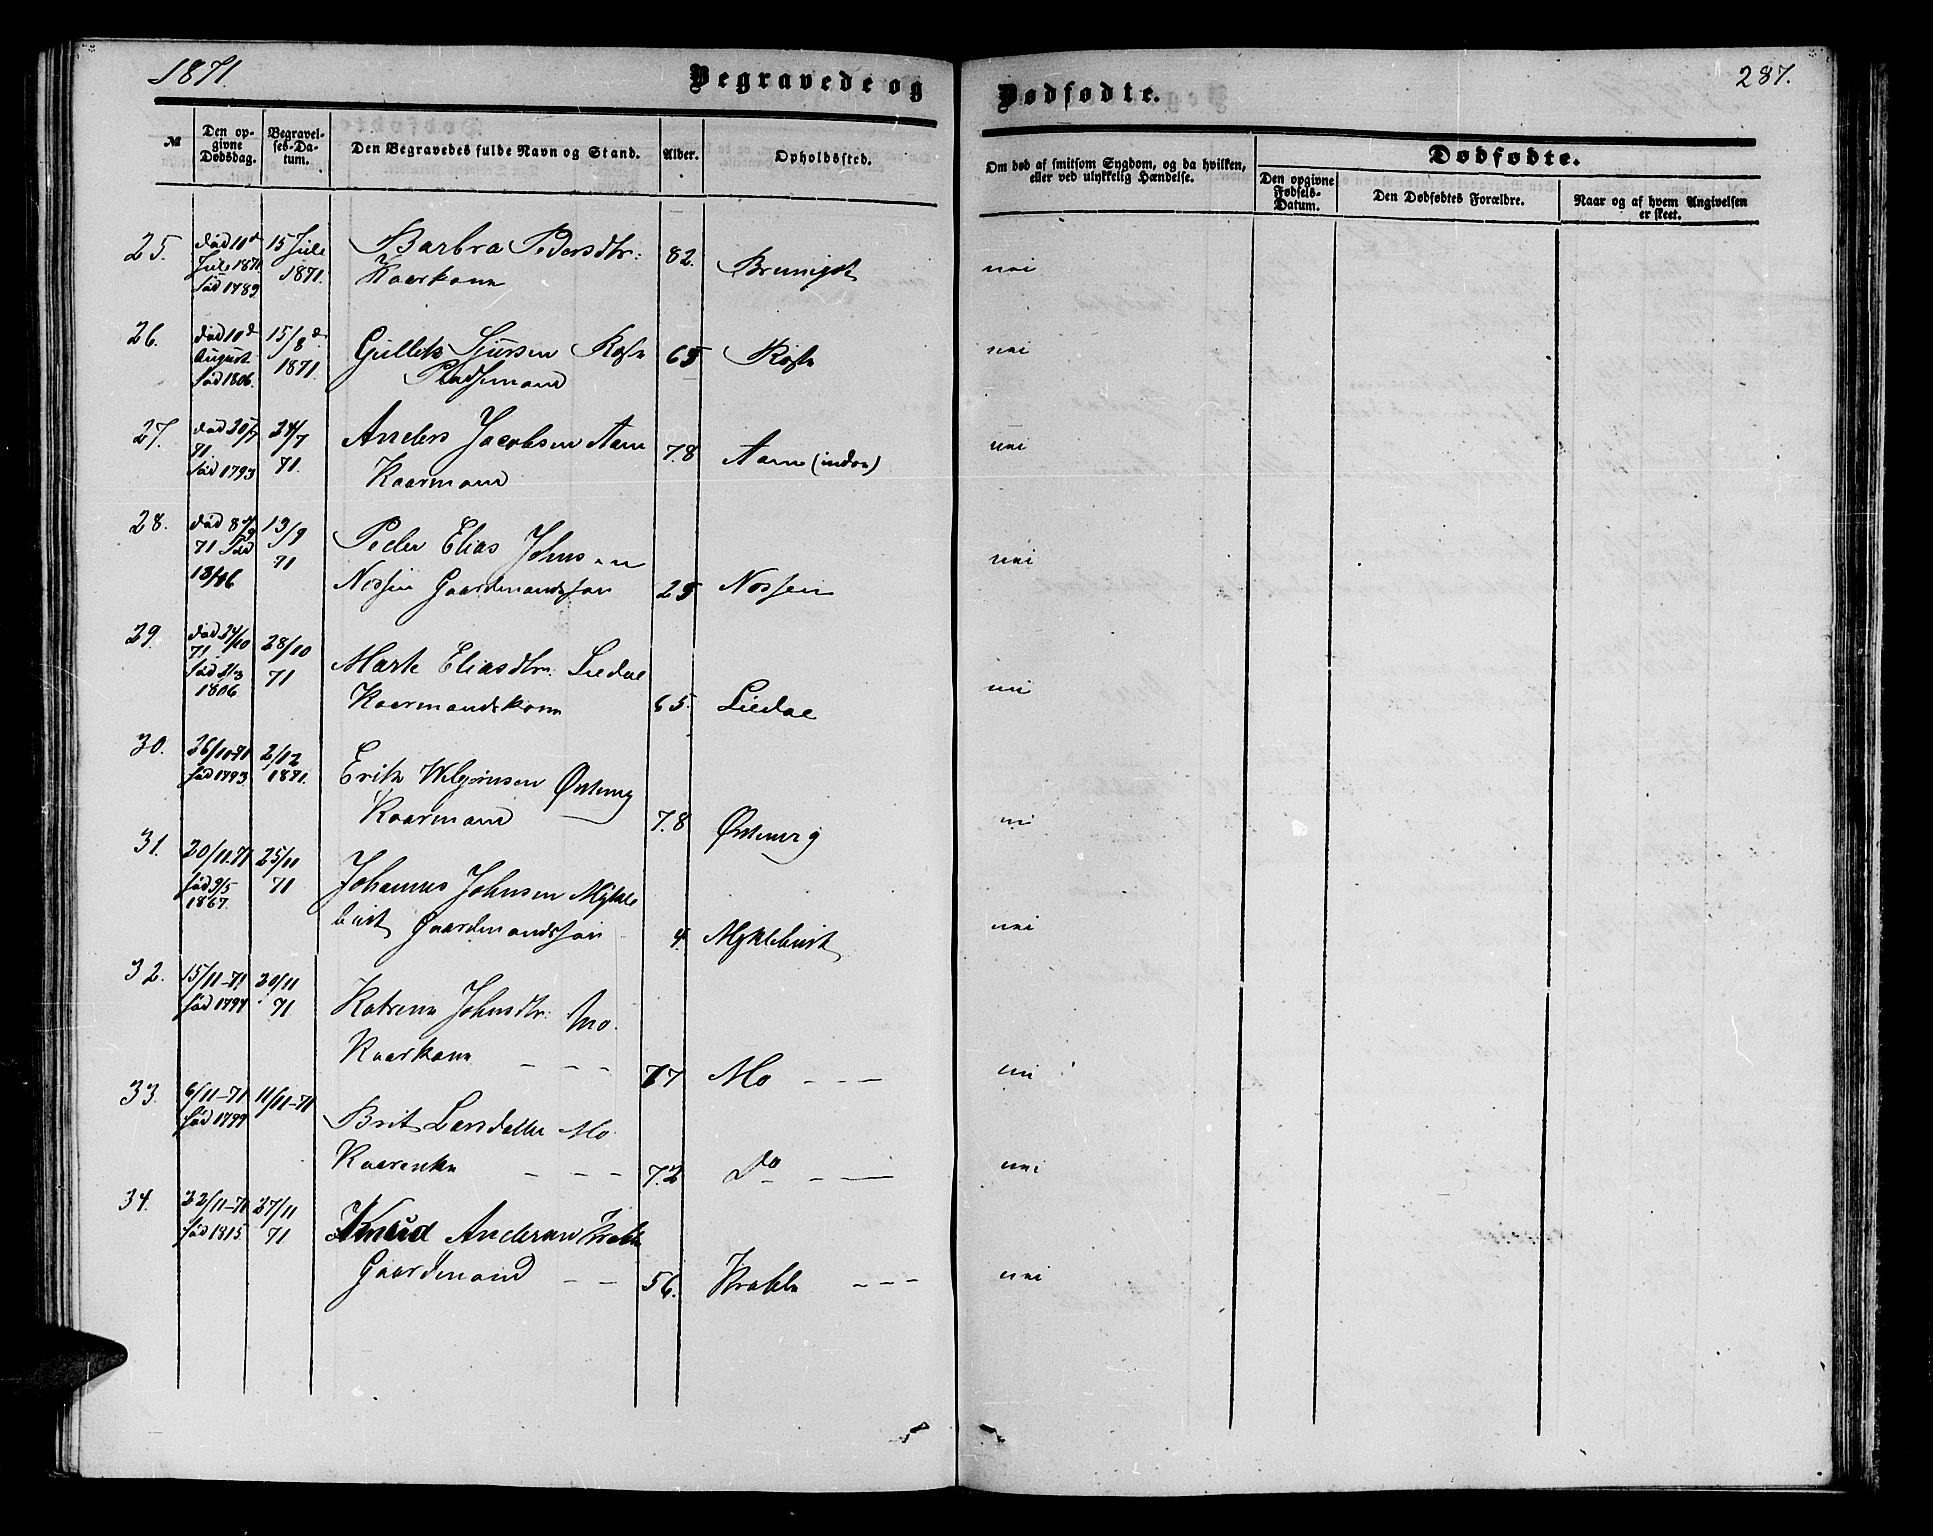 1871.
Begravede og
Dødfødte.
287.
№
Den op-
givne
Dødsdag.
Begravel-
ses-Da-
tum.
Den Begravedes fulde Navn og Stand.
Alder.
Opholdssted.
Om død af smitsom Sygdom, og da hvilken,
eller ved ulykkelig Hændelse.
Dødfødte.
Den opgivne
Fødsels-
Datum.
Den Dødfødtes Forældre.
Naar og af hvem Angivelsen
er skeet.
25. død 10de 15 Juli Barbra Pedersdtr: 82. nei
Juli 1871 1871. Kaarkone
fød 1789
26. død 10de 15/8de Gullek Sjursen 65 nei
August 1871. Pladsmand
fød 1806.
27. død 20/7 24/7 Anders Jacobsen Aam 78 Aam (indre) nei
71. 71. Kaarmand
fød 1793
28. død 8/9 13/9 Peder Elias Johnsen nei
71 fød 71 Nossen Gaardmandssøn 25 Nossen
1846
29. død 24/10 28/10 Marte Eliasdtr: Liedal nei
71. 71 Kaarmandskone 65. Liedal
fød 2/3
1806
30. 26/10-71 2/12 Erik
fød 1793 1871. Kaarmand 78 nei
31. 20/11-71 25/11 Johannes Johnsen Mykle
fød 9/5 71 bust Gaardmandssøn 4. Myklebust nei
1867.
32. 15/11-71 20/11 Katrina Johnsdtr: Mo
fød 1794 71 Kaarkone - - - 77 Mo - - - nei
33. 6/11-71 11/11-71 Brit Larsdatter Mo
fød 1799 Kaarenke - - - 72 Do - - - nei
34. 22/11-71 27/11 Knud Andersen Krabbe
fød 1815 71 Gaardmand - - 56. Krabbe - - - nei